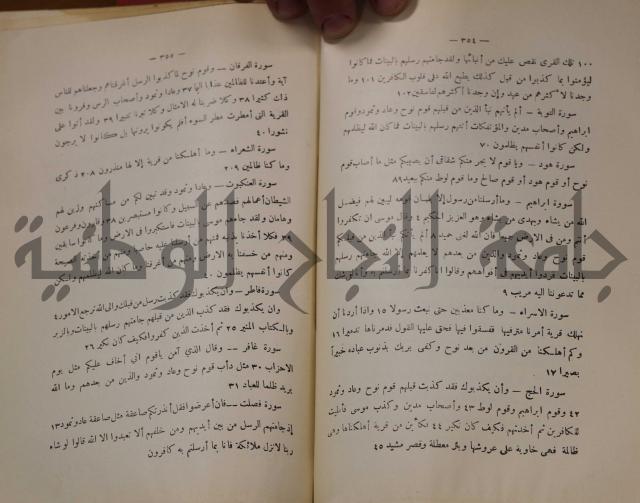 — ٣٥٤ —
١٠٠ تلك القرى نقص عليك من أنبائها ولقد جاءتهم رسلهم بالبينات فما كانوا
ليؤمنوا بما كذبوا من قبل كذلك يطبع الله على قلوب الكافرين ١٠١ وما
وجدنا لأكثرهم من عهد وإن وجدنا أكثرهم لفاسقين ١٠٢
سورة التوبة — ألم يأتهم نبأ الذين من قبلهم قوم نوح وعاد وثمود وقوم
ابراهيم وأصحاب مدين والمؤتفكات أتتهم رسلهم بالبينات فما كان الله ليظلمهم
ولكن كانوا أنفسهم يظلمون ٧٠
سورة هود — ويا قوم لا يجرمنكم شقاقي أن يصيبكم مثل ما أصاب قوم
نوح أو قوم هود أو قوم صالح وما قوم لوط منكم ببعيد ٨٩
سورة ابراهيم — وما أرسلنا من رسول إلا بلسان قومه ليبين لهم فيضل
الله من يشاء ويهدي من يشاء وهو العزيز الحكيم ٤ وقال موسى ان تكفروا
أنتم ومن في الارض جميعا فان الله لغني حميد ٨ ألم يأتكم نبأ الذين من قبلكم
قوم نوح وعاد وثمود والذين من بعدهم لا يعلمهم إلا الله جاءتهم رسلهم
بالبينات فردوا أيديهم في أفواههم وقالوا إنا كفرنا بما أرسلتم به وإنا لفي شك
مما تدعوننا اليه مريب ٩
سورة الاسراء — وما كنا معذبين حتى نبعث رسولا ١٥ واذا أردنا أن
نهلك قرية أمرنا مترفيها ففسقوا فيها فحق عليها القول فدمرناها تدميرا ١٦
وكم أهلكنا من القرون من بعد نوح وكفى بربك بذنوب عباده خبيراً
بصيرا ١٧
سورة الحج — وأن يكذبوك فقد كذبت قبلهم قوم نوح وعاد وثمود
٤٢ وقوم ابراهيم وقوم لوط ٤٣ وأصحاب مدين وكذب موسى فأمليت
للكافرين ثم أخذتهم فكيف كان نكير ٤٤ فكأين من قرية أهلكناها وهي
ظالمة فهي خاوية على عروشها وبئر معطلة وقصر مشيد ٤٥
— ٣٥٥ —
سورة الفرقان — وقوم نوح لما كذبوا الرسل أغرقناهم وجعلناهم للناس
آية وأعتدنا للظالمين عذابا اليما ٣٧ وعادا وثمود وأصحاب الرس وقرونا بين
ذلك كثيرا ٣٨ وكلا ضربنا له الامثال وكلا تبرنا تتبيرا ٣٩ ولقد أتوا على
القرية التي أمطرت مطر السوء أفلم يكونوا يرونها بل كانوا لا يرجون
نشورا ٤٠
سورة الشعراء — وما أهلكنا من قرية إلا لها منذرون ٢٠٨ ذكرى
وما كنا ظالمين ٢٠٩
سورة العنكبوت — وعادا وثمود وقد تبين لكم من مساكنهم وزين لهم
الشيطان أعمالهم فصدهم عن السبيل وكانوا مستبصرين ٣٨ وقارون وفرعون
وهامان ولقد جاءهم موسى بالبينات فاستكبروا في الارض وما كانوا سابقين
٣٩ فكلا أخذنا بذنبه فمنهم من أرسلنا عليه حاصبا ومنهم من أخذته الصيحة
ومنهم من خسفنا به الارض ومنهم من أغرقنا وما كان الله ليظلمهم ولكن
كانوا أنفسهم يظلمون ٤٠
سورة فاطر — وأن يكذبوك فقد كذبت رسل من قبلك والى الله ترجع الامور ٤
وان يكذبوك فقد كذب الذين من قبلهم جاءتهم رسلهم بالبينات وبالزبر
وبالكتاب المنير ٢٥ ثم أخذت الذين كفروا فكيف كان نكير ٢٦
سورة غافر — وقال الذي آمن ياقوم اني أخاف عليكم مثل يوم
الاحزاب ٣٠ مثل دأب قوم نوح وعاد وثمود والذين من بعدهم وما الله
يريد ظلما للعباد ٣١
سورة فصلت — فان أعرضوا فقل أنذرتكم صاعقة مثل صاعقة عاد وثمود ١٣
إذ جاءتهم الرسل من بين أيديهم ومن خلفهم ألا تعبدوا الا الله قالوا لو شاء
ربنا لأنزل ملائكة فانا بما أرسلتم به كافرون
جامعة النجاح الوطنية